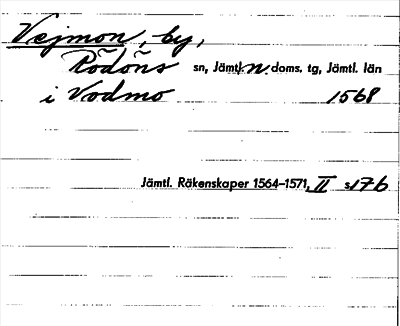 Vejmon, by,
Rödöns sn, Jämtl. n. doms. tg, Jämtl. län
i Vodmo 1568
Jämtl. Räkenskaper 1564-1571, II s 17b